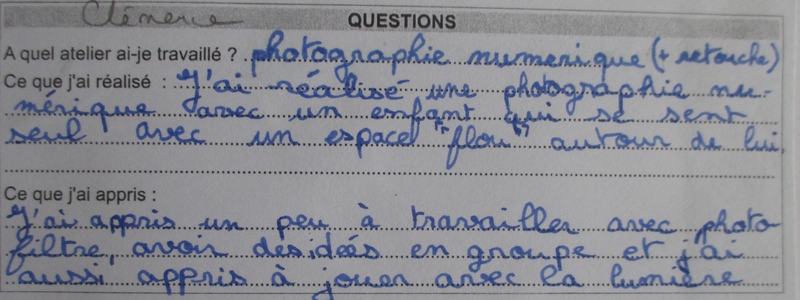 Clémence
QUESTIONS
A quel atelier ai-je travaillé ? photographie numerique (+ retouche)
Ce que j'ai réalisé : J'ai réalisé une photographie nu-
mérique avec un enfant qui se sent
seul avec un espace "flou" autour de lui.
Ce que j'ai appris :
J'ai appris un peu à travailler avec photo
filtre, avoir des ideés en groupe et j'ai
aussi appris à jouer avec la lumière